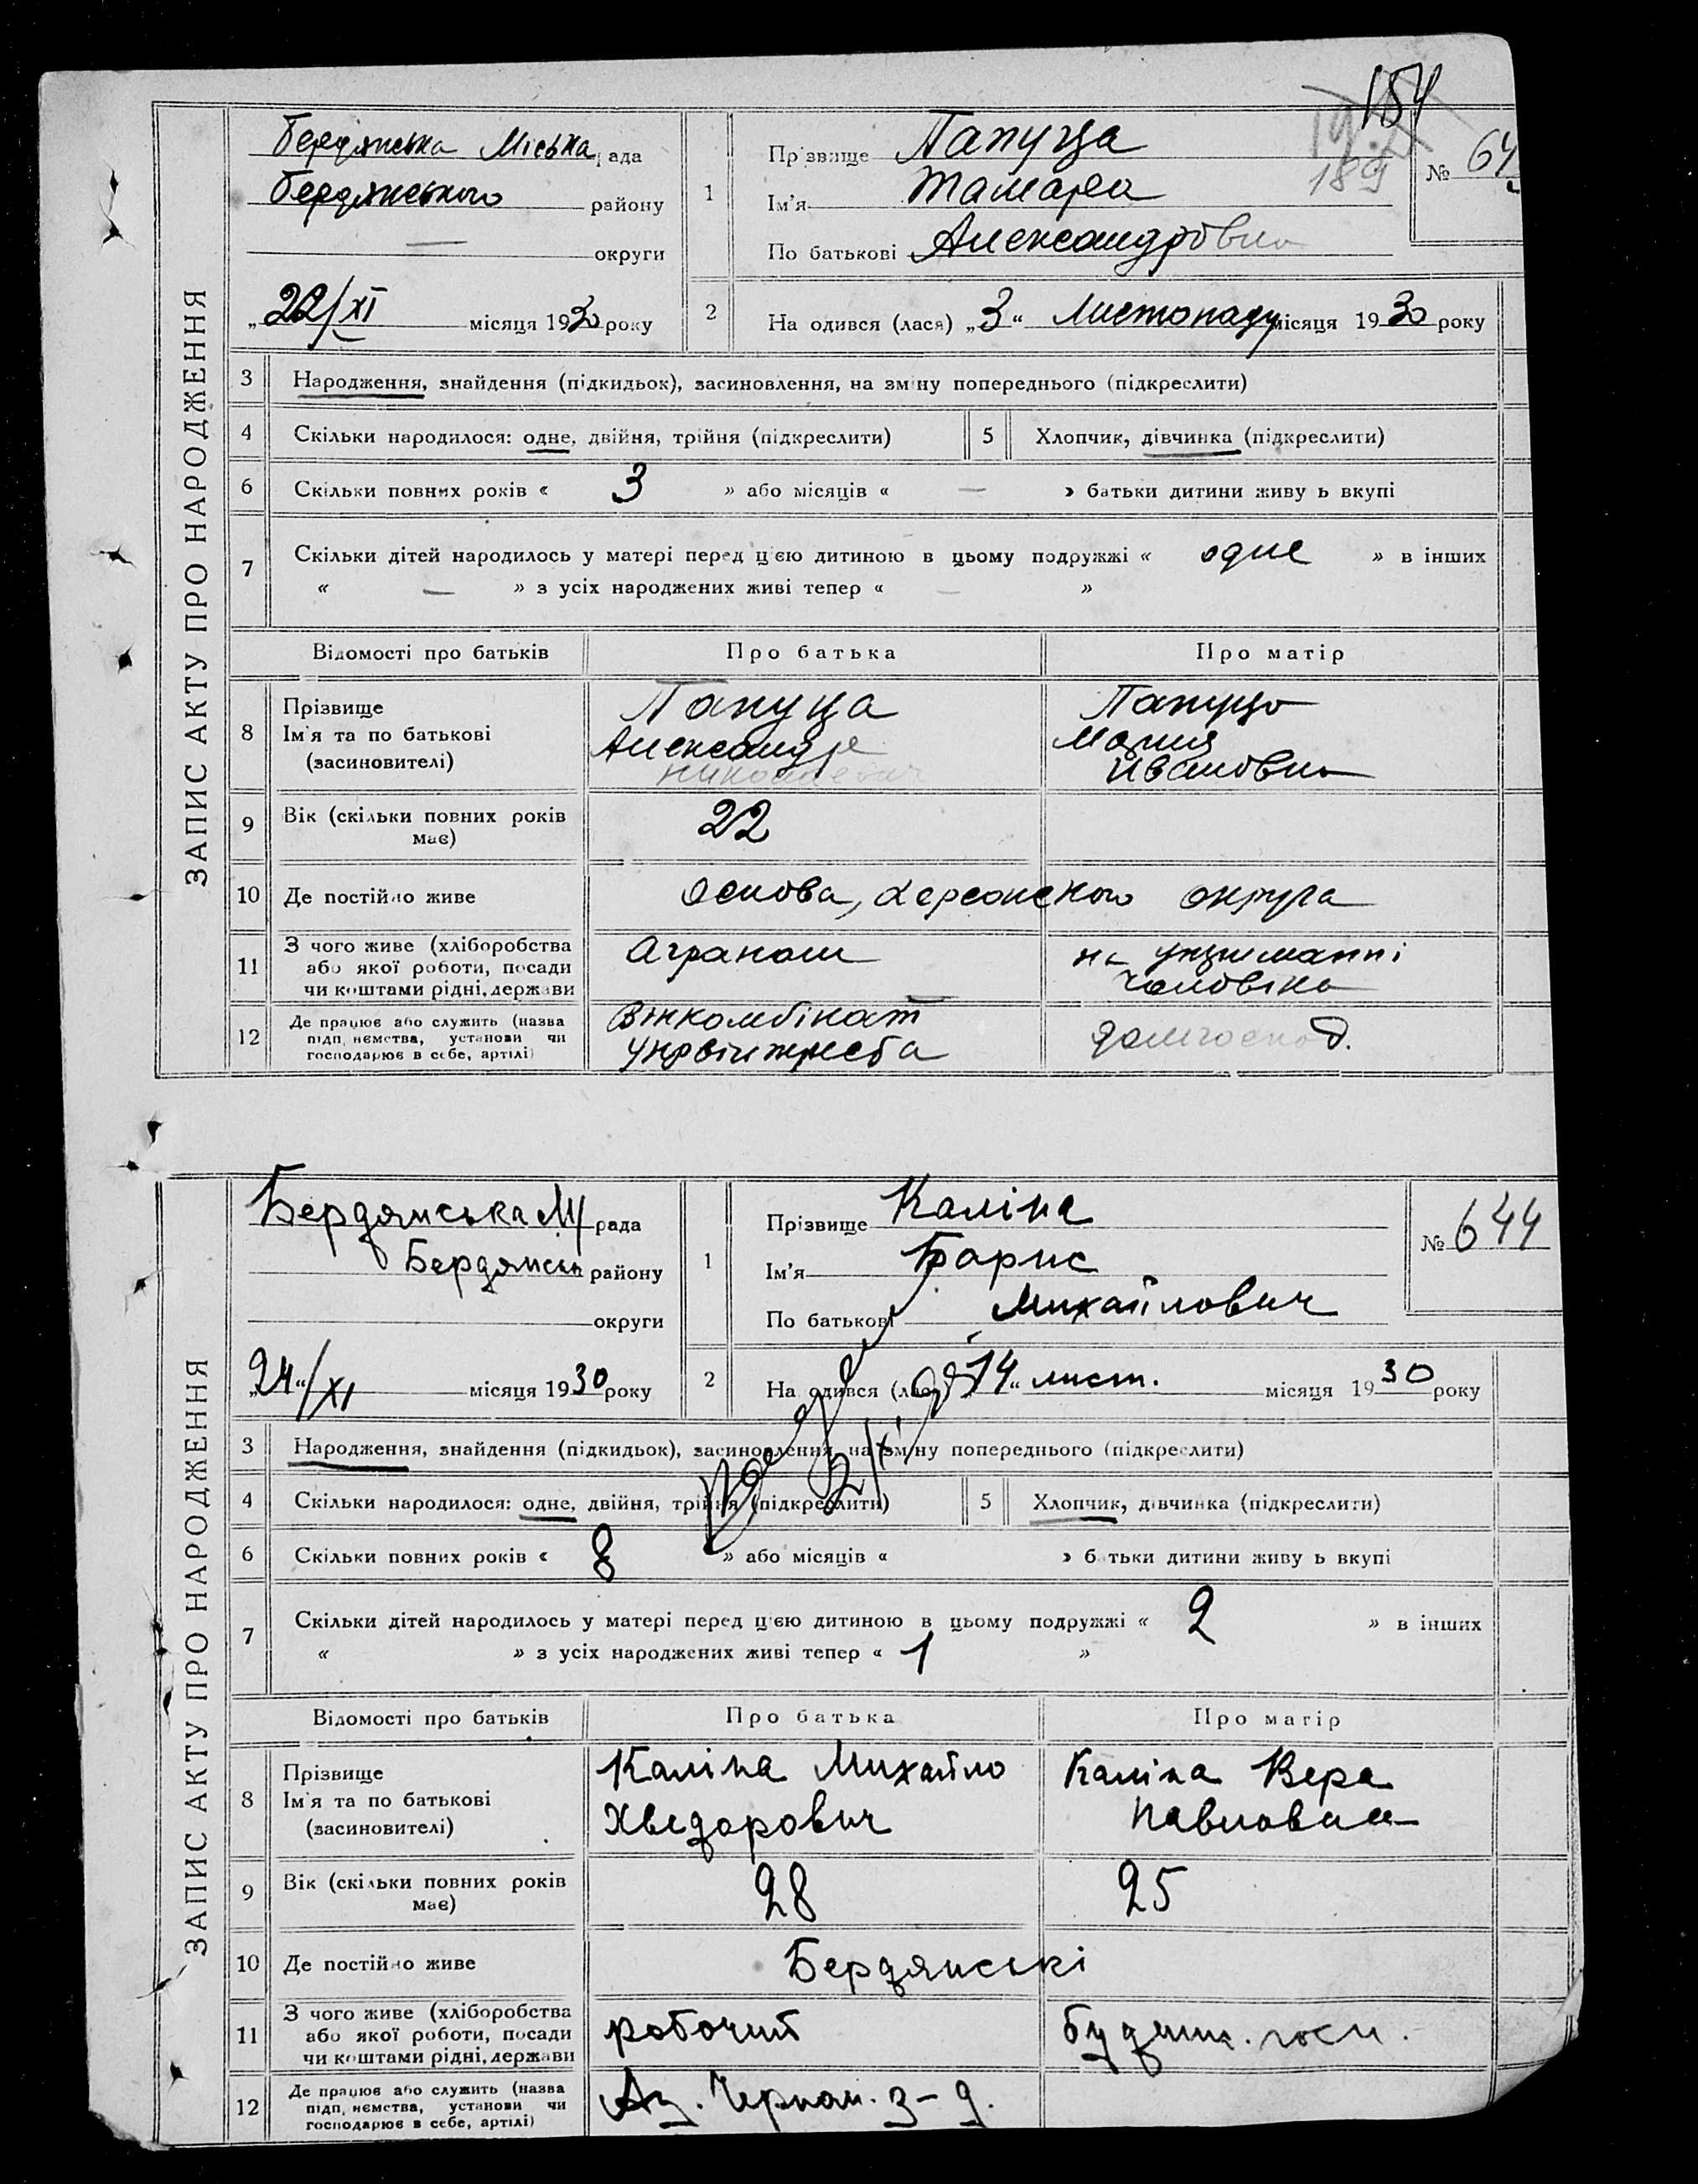 154
189
ЗАПИС АКТУ ПРО НАРОДЖЕННЯ
Бердянська Міська рада
Бердянського району
— округи
„22/XI місяця 1930 року
1
Прізвище Папуца
Ім'я Тамара
По батькові Александровна
№ 64
2
На одився (лася) „3“ Листопаду місяця 1930 року
3 Народження, знайдення (підкидьок), засиновлення, на зміну попереднього (підкреслити)
4 Скільки народилося: одне, двійня, трійня (підкреслити)
5 Хлопчик, дівчинка (підкреслити)
6 Скільки повних років « 3 » або місяців « — » батьки дитини живу ь вкупі
7 Скільки дітей народилось у матері перед цією дитиною в цьому подружжі « одне » в інших
« — » з усіх народжених живі тепер « — »
Відомості про батьків Про батька Про матір
8 Прізвище Ім'я та по батькові (засиновителі)
Папуца Александр Николаевич
Папуца Мария Ивановна
9 Вік (скільки повних років має) 22
10 Де постійно живе Основа, Херсонского округа
11 З чого живе (хліборобства або якої роботи, посади чи коштами рідні, держави
Аграном
на утриманні чоловіка
12 Де працює або служить (назва підп, ємства, установи чи господарює в себе, артілі)
Вінкомбінат Укрвінтреста
домгоспод.
ЗАПИС АКТУ ПРО НАРОДЖЕННЯ
Бердянська М/ рада
Бердянськ району
округи
„24“/XI місяця 1930 року
1
Прізвище Каліна
Ім'я Барис
По батькові Михайлович
№ 644
2
На одився (лася) „14“ лист. місяця 1930 року
3 Народження, знайдення (підкидьок), засиновлення, на зміну попереднього (підкреслити)
4 Скільки народилося: одне, двійня, трійня (підкреслити)
5 Хлопчик, дівчинка (підкреслити)
6 Скільки повних років « 8 » або місяців « » б тьки дитини живу ь вкупі
7 Скільки дітей народилось у матері перед цією дитиною в цьому подружжі « 2 » в інших
« » з усіх народжених живі тепер « 1 »
Відомості про батьків Про батька Про матір
8 Прізвище Ім'я та по батькові (засиновителі)
Каліна Михайло Хведорович
Каліна Вера Павловна
9 Вік (скільки повних років має) 28 25
10 Де постійно живе Бердянські
11 З чого живе (хліборобства або якої роботи, посади чи коштами рідні, держави
робочий
будинк. госп.
12 Де працює або служить (назва підп, ємства, установи чи господарює в себе, артілі)
Аз. Чорном. з-д.